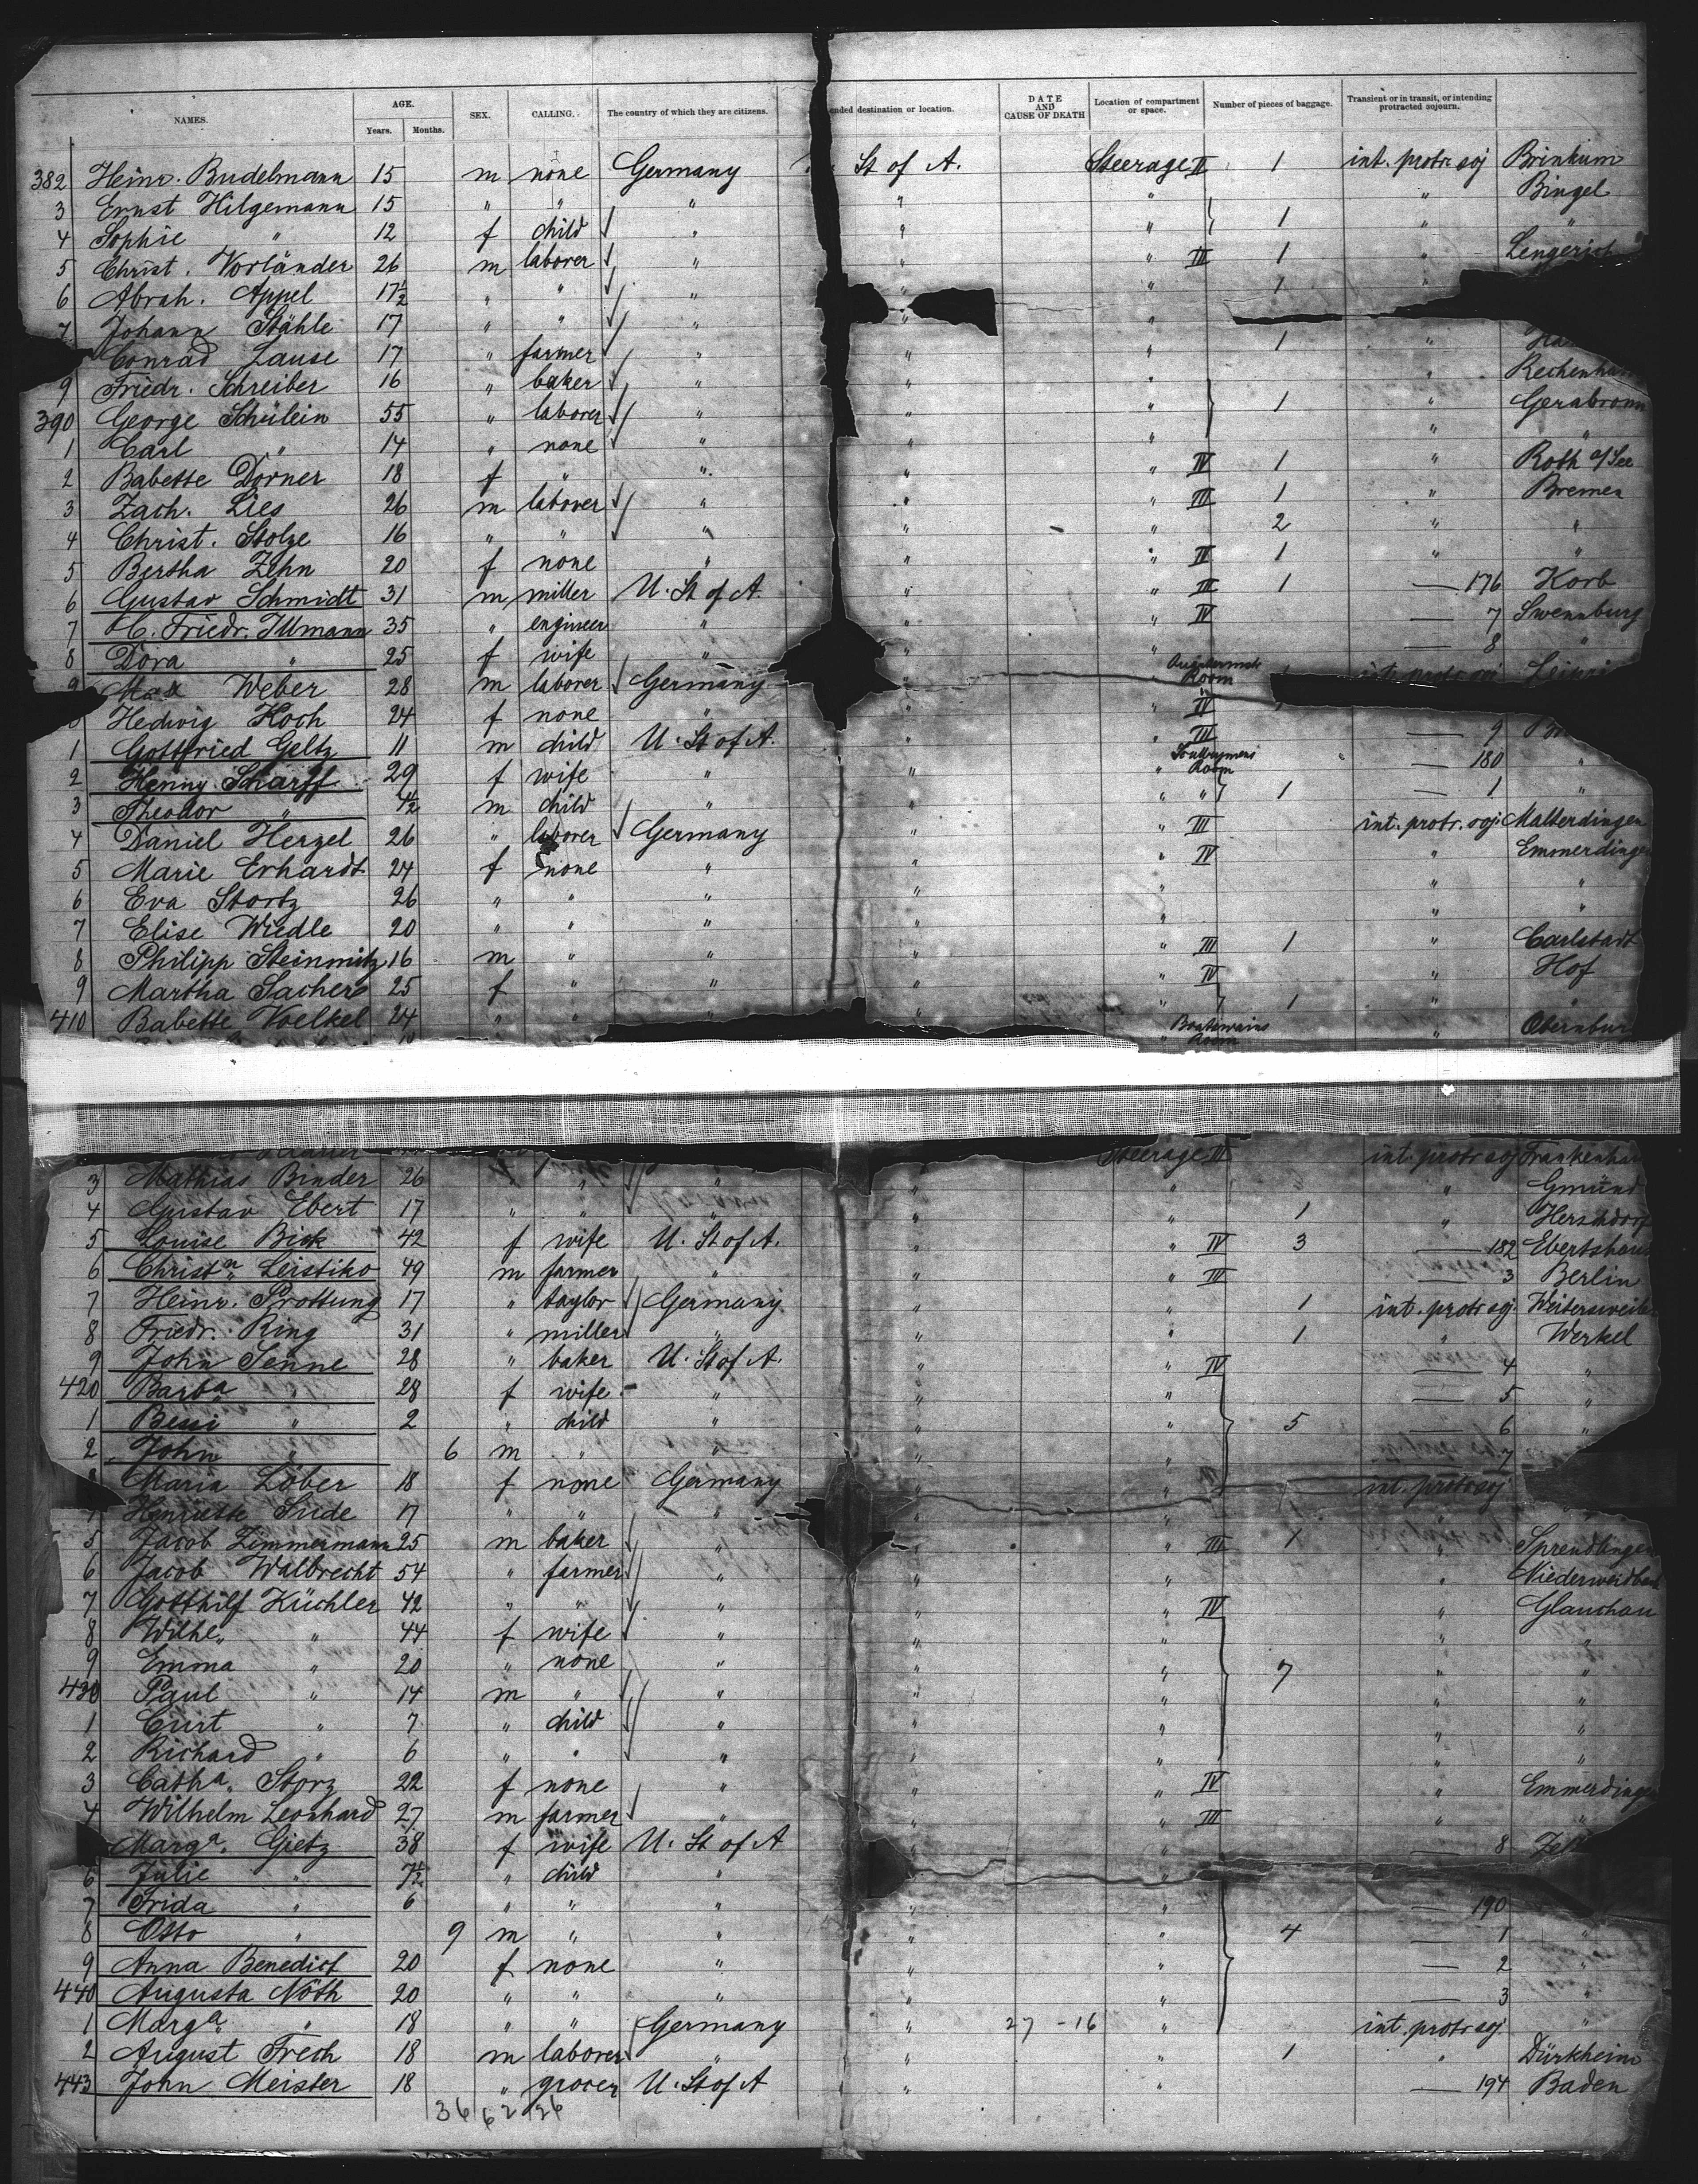 NAMES. AGE. Years. Months. SEX. CALLING. The country of which they are citizens. ended destination or location. DATE AND CAUSE OF DEATH Location of compartment or space. Number of pieces of baggage. Transient or in transit, or intending protracted sojourn.
382 Heinr. Budelmann 15 m none Germany St of A. Steerage II 1 int. protr. soj Brinkum
3 Ernst Hilgemann 15 " " " " " " Bingel
4 Sophie " 12 f child " " " 1 " "
5 Christ. Vorländer 26 m laborer " " " III 1 "
6 Abrah. Appel 17½ " " " " " 1 "
7 Johann Stähle 17 " " " " "
Conrad Lause 17 " farmer " " " 1 "
9 Friedr. Schreiber 16 " baker " " " "
390 George Schülein 55 " laborer " " " 1 " Gerabronn
1 Carl " 14 " none " " " " "
2 Babette Dorner 18 f " " " " IV 1 " Roth a/See
3 Zach. Lies 26 m laborer " " " III 1 " Bremen
4 Christ. Stolze 16 " " " " " 2 " "
5 Bertha Zehn 20 f none " " " IV 1 " "
6 Gustav Schmidt 31 m miller U. St of A. " " III 1 — 176 Korb
7 H. Friedr. Illmann 35 " engineer " " " IV — 7
8 Dora " 25 f wife " " " — 8 "
9 Max Weber 28 m laborer Germany " Room int. protr. soj
Hedwig Koch 24 f none " " " IV
1 Gottfried Geltz 11 m child U. St of A. " " III — 9
2 Henny Scharff 29 f wife " " " Room — 180 "
3 Theodor " 4½ m child " " " " 1 — 1 "
4 Daniel Herzel 26 " laborer Germany " " III int. protr. soj. Malterdingen
5 Marie Erhardt 24 f none " " " IV " Emmerdingen
6 Eva Stortz 26 " " " " " " "
7 Elise Wiedle 20 " " " " " " "
8 Philipp Steinmitz 16 m " " " " III 1 " Carlstadt
9 Martha Sachers 25 f " " " " IV " Hof
410 Babette Voelkel 24 " " " " " 1 " "
Boatswains Room "
Steerage III int. protr soj
3 Mathias Binder 26 " " " " " " Gmünd
4 Gustav Ebert 17 " " " " " 1 "
5 Louise Bick 42 f wife U. St of A. " " IV 3 — 182
6 Christn. Leistiko 49 m farmer " " " III — 3 Berlin
7 Heinr. Prottung 17 " taylor Germany " " 1 int. protr soj. Weitersweiler
8 Friedr. Ring 31 " miller " " " 1 " Werkel
9 John Senne 28 " baker U. St of A. " " IV — 4 "
420 Barba " 28 f wife " " " — 5 "
1 Bessi " 2 " child " " " 5 — 6 "
2 John " 6 m " " " " — 7
Maria Löber 18 f none Germany " " int. protr soj
4 Henriette Süde 17 " " " " " " "
5 Jacob Zimmermann 25 m baker " " " III 1 " Sprendlingen
6 Jacob Walbrecht 54 " farmer " " " "
7 Gotthilf Küchler 42 " " " " " IV " Glauchau
8 Wilhe. " 44 f wife " " " " "
9 Emma " 20 " none " " " 7 " "
430 Paul " 14 m " " " " " "
1 Curt " 7 " child " " " " "
2 Richard " 6 " " " " " " "
3 Catha. Storz 22 f none " " " IV " Emmerdingen
4 Wilhelm Leonhard 27 m farmer " " " III " "
Marga. Gietz 38 f wife U. St of A " " — 8
6 Julie " 7½ " child " " "
7 Frida " 6 " " " " " — 190
8 Otto " 9 m " " " " 4 — 1 "
9 Anna Benedict 20 f none " " " — 2 "
440 Augusta Nöth 20 " " " " " — 3 "
1 Marga " 18 " " Germany " 27 - 16 " int. protr soj. "
2 August Frech 18 m laborer " " " 1 " Dürkheim
443 John Meister 18 " grocer U. St of A " " — 194 Baden
36 62 26